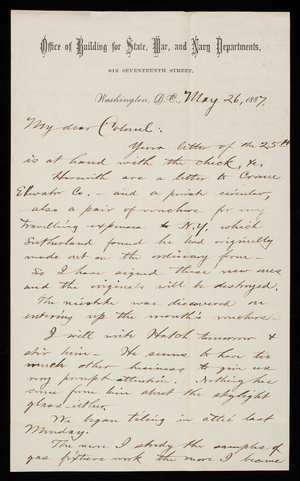 Office of Building for State, War, and Navy Departments,
612 SEVENTEENTH STREET,
Washington, D.C., May 26, 1887.
My dear Colonel:
Your letter of the 25th
is at hand with the check, &c.
Herewith are a letter to Crane
Elevator Co. – and a print circular,
also a pair of vouchers for my
travelling expenses to N.Y. which
Sutherland found he had originally
made out in the ordinary form –
So I have signed these new ones
and the originals will be destroyed.
The mistake was discovered on
entering up the month's vouchers –
I will write Hatch tomorrow &
stir him – He seems to have too
much other business to give us
very prompt attention. – Nothing has
come from him about the skylight
glass either.
We began tiling in attic last
Monday.
The more I study the samples of
gas fixture work the more I become